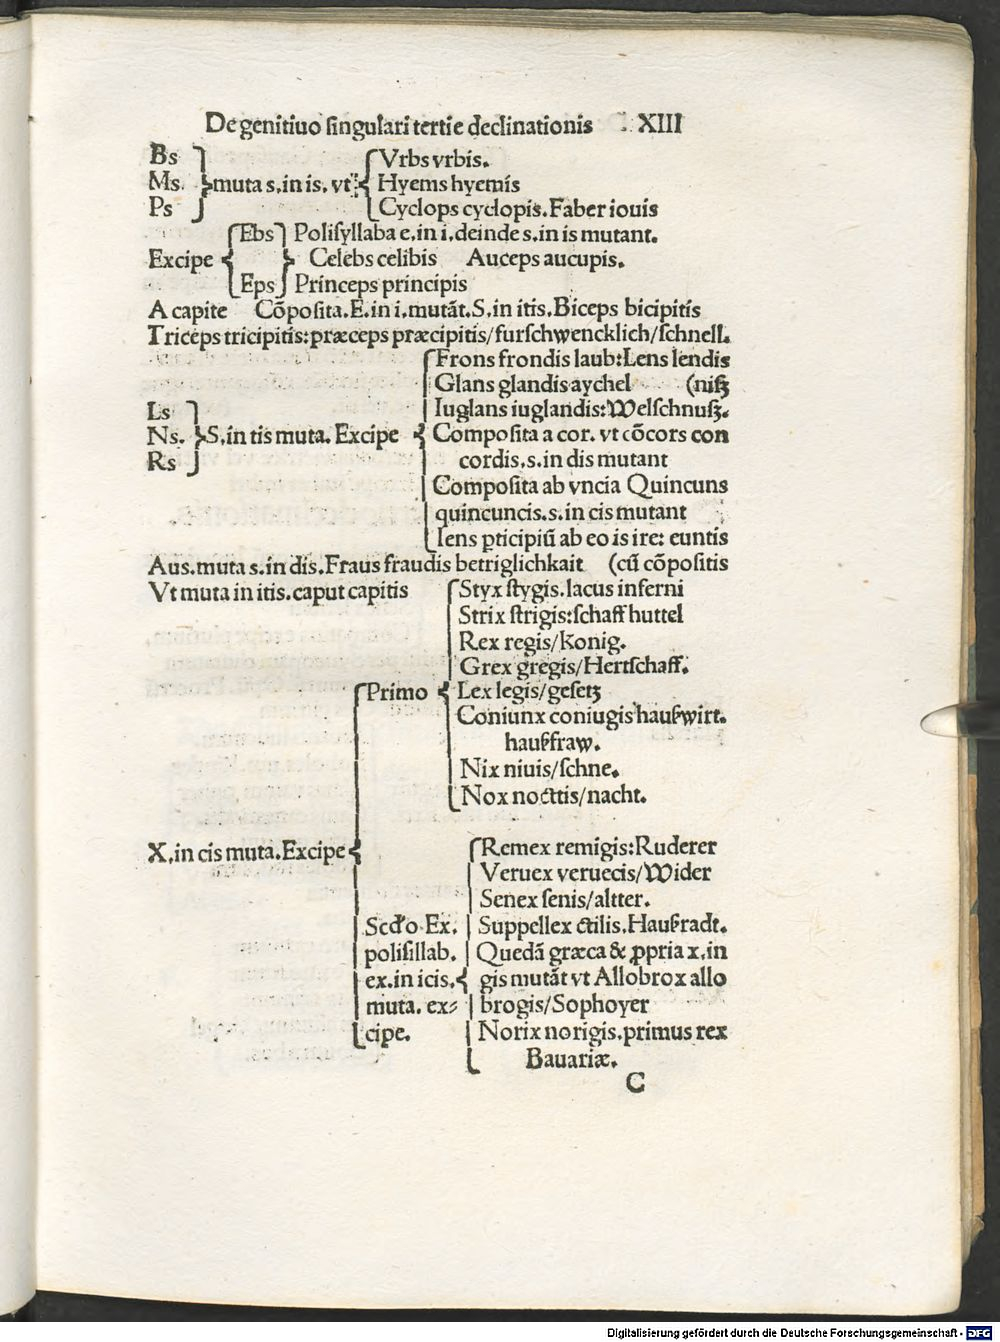 De genitiuo singulari tertie declinationis XIII
Bs
Ms.
Ps
muta s. in is. vt
Vrbs vrbis.
Hyems hyemis
Cyclops cyclopis. Faber iouis
Excipe
Ebs
Eps
Polisyllaba e. in i. deinde s. in is mutant.
Celebs celibis Auceps aucupis.
Princeps principis
A capite Cōposita. E. in i. mutāt. S. in itis. Biceps bicipitis
Triceps tricipitis: præceps præcipitis/furschwencklich/schnell.
Ls
Ns.
Rs
S. in tis muta. Excipe
Frons frondis laub: Lens lendis
Glans glandis aychel (nisz
Iuglans iuglandis: Welschnusz.
Composita a cor. vt cōcors con
cordis. s. in dis mutant
Composita ab vncia Quincuns
quincuncis. s. in cis mutant
Iens pticipiū ab eo is ire: euntis
Aus. muta s. in dis. Fraus fraudis betriglichkait (cū cōpositis
Vt muta in itis. caput capitis
X. in cis muta. Excipe
Primo
Styx stygis. lacus inferni
Strix strigis: schaff huttel
Rex regis/konig.
Grex gregis/Hertschaff.
Lex legis/gesetz
Coniunx coniugis haußwirt.
haußfraw.
Nix niuis/schne.
Nox noctis/nacht.
Scdo Ex.
polisillab.
ex. in icis.
muta. ex⸗
cipe.
Remex remigis: Ruderer
Veruex veruecis/Wider
Senex senis/altter.
Suppellex ctilis. Haußradt.
Quedā græca & ꝓpria x. in
gis mutāt vt Allobrox allo
brogis/Sophoyer
Norix norigis. primus rex
Bauariæ.
C
Digitalisierung gefördert durch die Deutsche Forschungsgemeinschaft - DFG